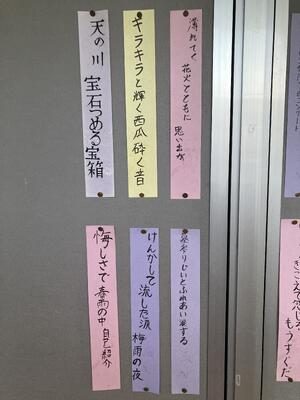 薄れてく花火とともに思い出が
キラキラと輝く西瓜砕く音
天の川 宝石つめる宝箱
墓参りじいとふれあい涙する
けんかして流した涙梅雨の夜
悔しさで春雨の中自己紹介
もうすぐだ